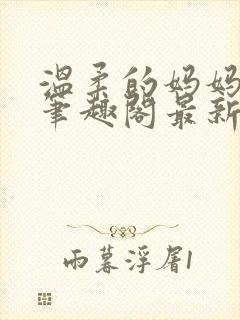 温柔的妈妈
笔趣阁最新
雨暮浮屠1